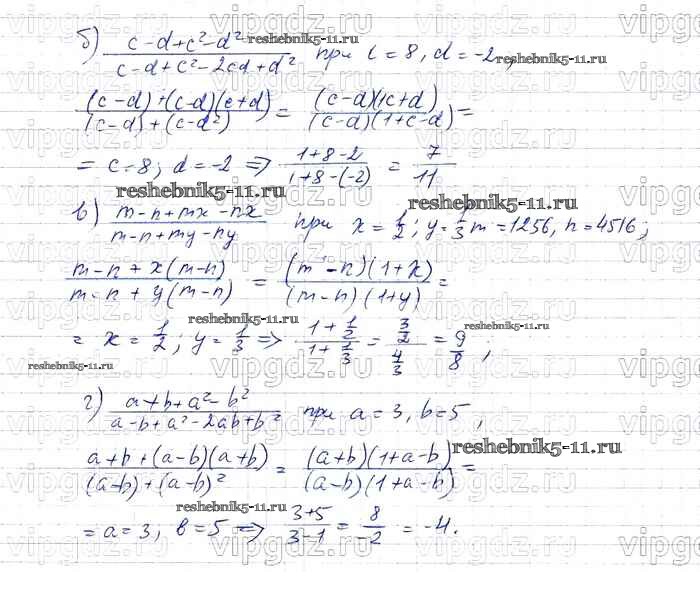 б) (c-d+c²-d²)/(c-d+c²-2cd+d²) при c=8, d=-2;
((c-d)+(c-d)(c+d))/((c-d)+(c-d²)) = ((c-d)(1c+d))/((c-d)(1+c-d)) =
= c=8; d=-2 ⇒ (1+8-2)/(1+8-(-2)) = 7/11
в) (m-n+mx-nx)/(m-n+my-ny) при x=1/2; y=1/3 m=1256, n=4516;
(m-n+x(m-n))/(m-n+y(m-n)) = ((m-n)(1+x))/((m-n)(1+y)) =
= x=1/2; y=1/3 ⇒ (1+1/2)/(1+1/3) = (3/2)/(4/3) = 9/8;
г) (a+b+a²-b²)/(a-b+a²-2ab+b²) при a=3, b=5,
(a+b+(a-b)(a+b))/((a-b)+(a-b)²) = ((a+b)(1+a-b))/((a-b)(1+a-b)) =
= a=3, b=5 ⇒ (3+5)/(3-1) = 8/-2 = -4.
reshebnik5-11.ru
vipgdz.ru